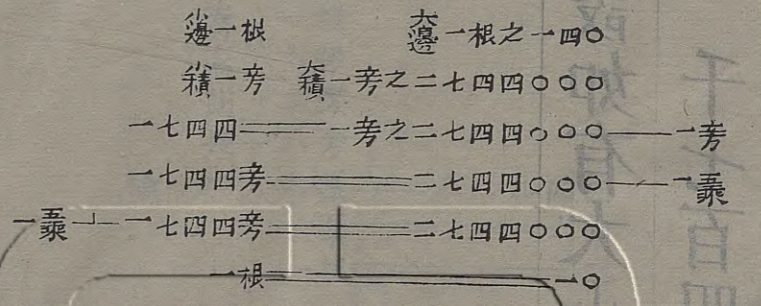 小邊一根 大邊一根之一四〇
小積一立方 大積一立方之二七四四〇〇〇
一七四四══一立方之二七四四〇〇〇—一立方
一七四四立方══二七四四〇〇〇—一五乘
一五乘⊥一七四四立方══二七四四〇〇〇
一根══一〇